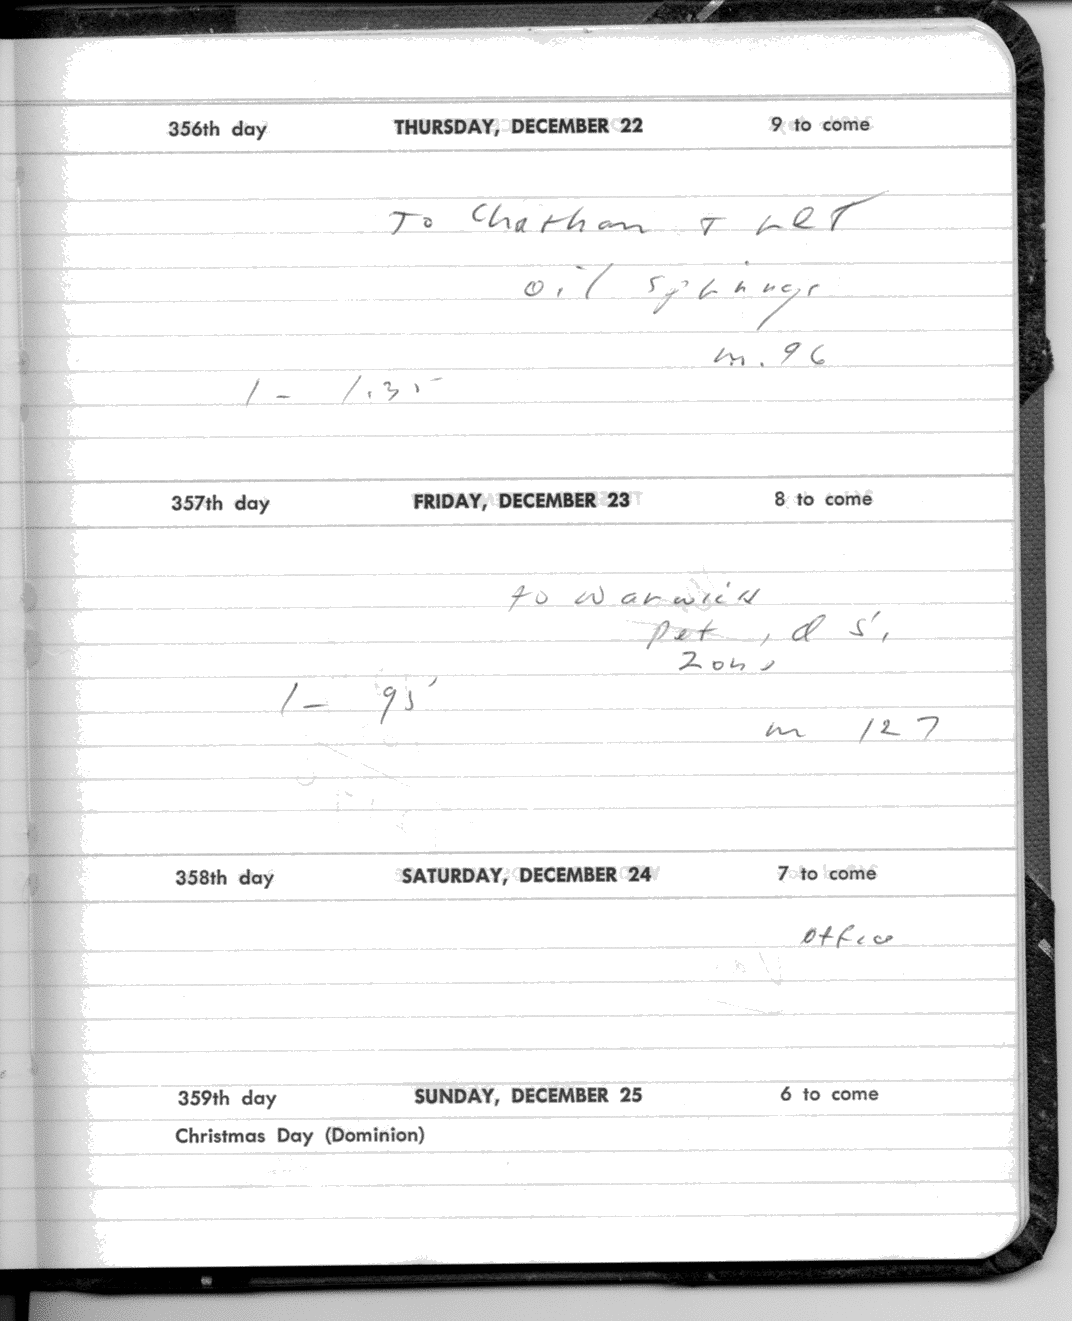 356th day THURSDAY, DECEMBER 22 9 to come
To Chatham +
oil springs
m. 96
1 - 1.35
357th day FRIDAY, DECEMBER 23 8 to come
to Warwick
Pet , d s.
Zone
1 - 95
m 127
358th day SATURDAY, DECEMBER 24 7 to come
office
359th day SUNDAY, DECEMBER 25 6 to come
Christmas Day (Dominion)